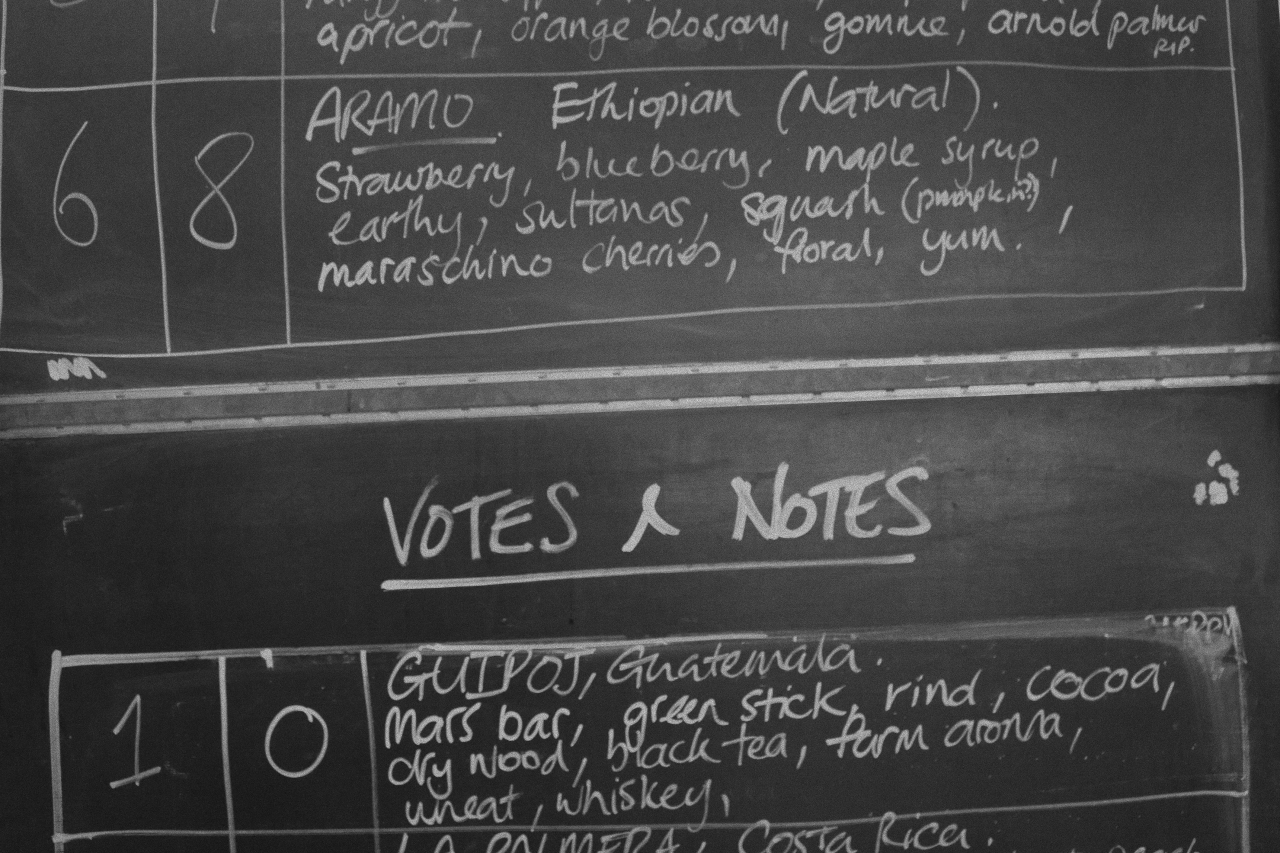 apricot, orange blossom, gomme, arnold palmer
R.I.P.
6 8 ARAMO. Ethiopian (Natural).
Strawberry, blueberry, maple syrup,
earthy, sultanas, squash (pumpkin?),
maraschino cherries, floral, yum.
VOTES & NOTES
1 0 GUIPOJ, Guatemala.
Mars bar, green stick, rind, cocoa,
dry wood, black tea, farm aroma,
wheat, whiskey,
LA PALMERA, Costa Rica.
peach